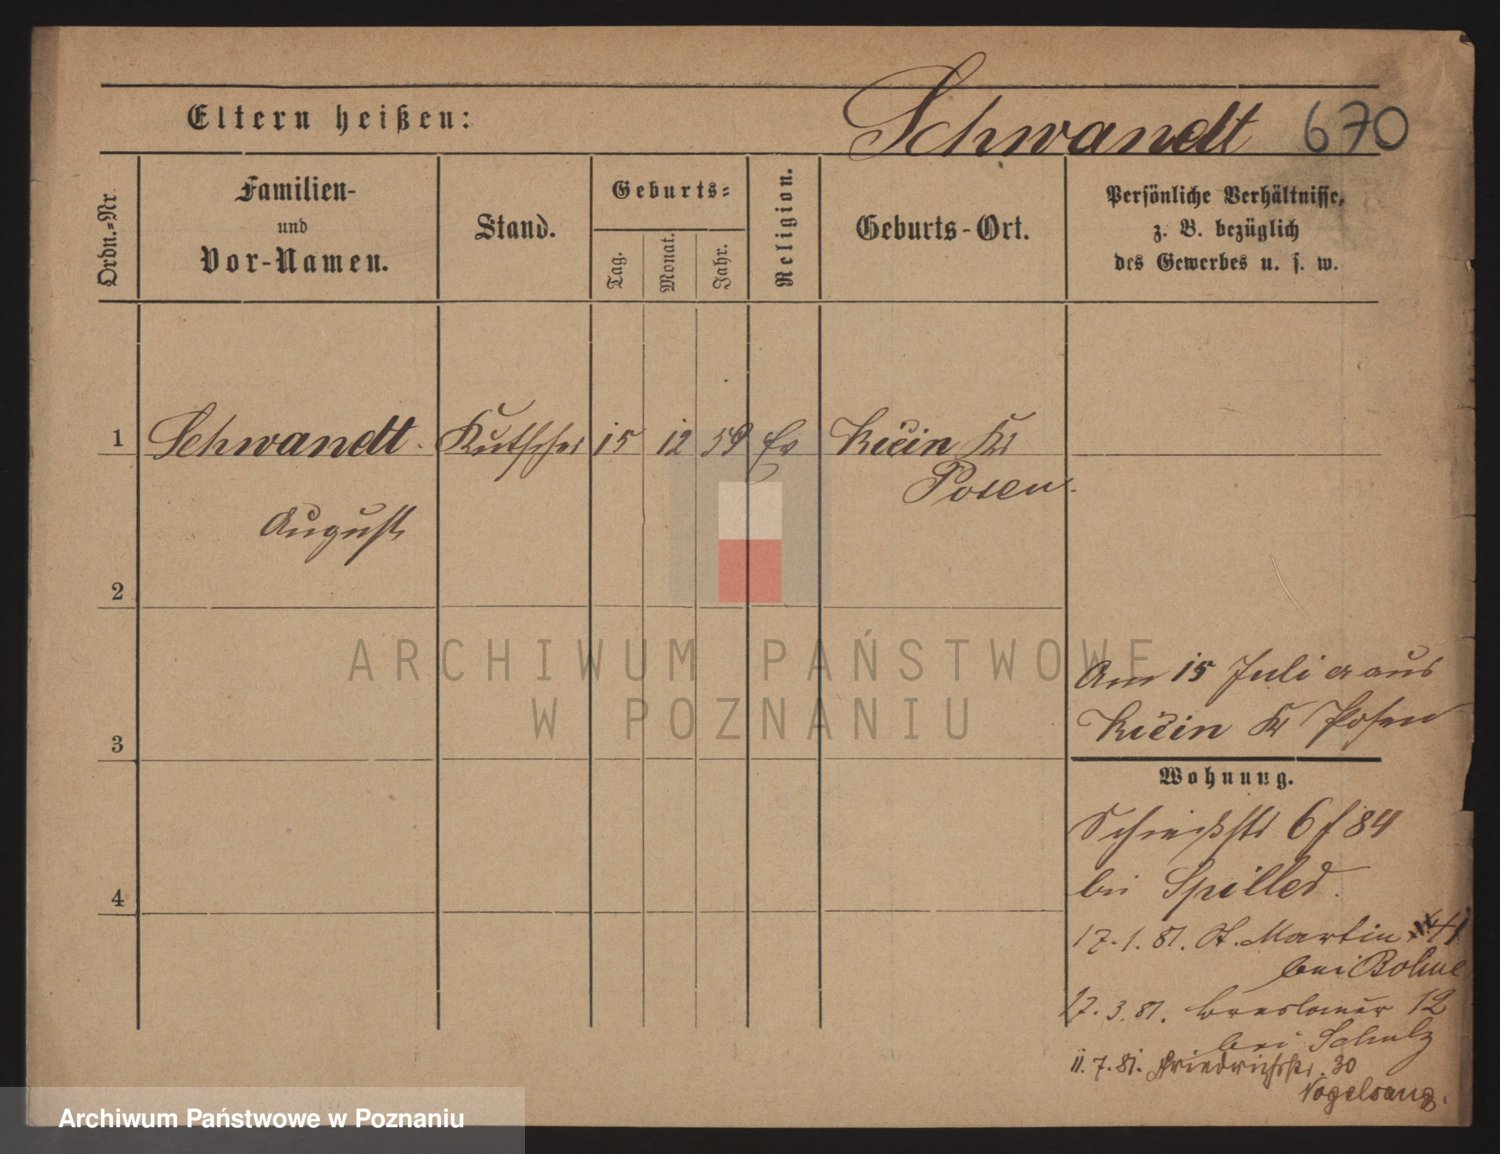 Eltern heißen:
Schwandt 670
Ordn.-Nr.
Familien-
und
Vor-Namen.
Stand.
Geburts-
Tag.
Monat.
Jahr.
Religion.
Geburts-Ort.
Persönliche Verhältnisse,
z. B. bezüglich
des Gewerbes u. s. w.
1 Schwandt Kutscher 15 12 59 Ev Kicin Kr
Posen.
August
2
3
4
Am 15 Juli a aus
Kicin Kr Posen
Wohnung.
6 f 84
bei
17.1.81. St. Martin 41
bei Bohme
17.3.81. Breslauer 12
bei Schulz
11.7.81. Friedrichstr. 30
Vogelsang.
ARCHIWUM PAŃSTWOWE
W POZNANIU
Archiwum Państwowe w Poznaniu